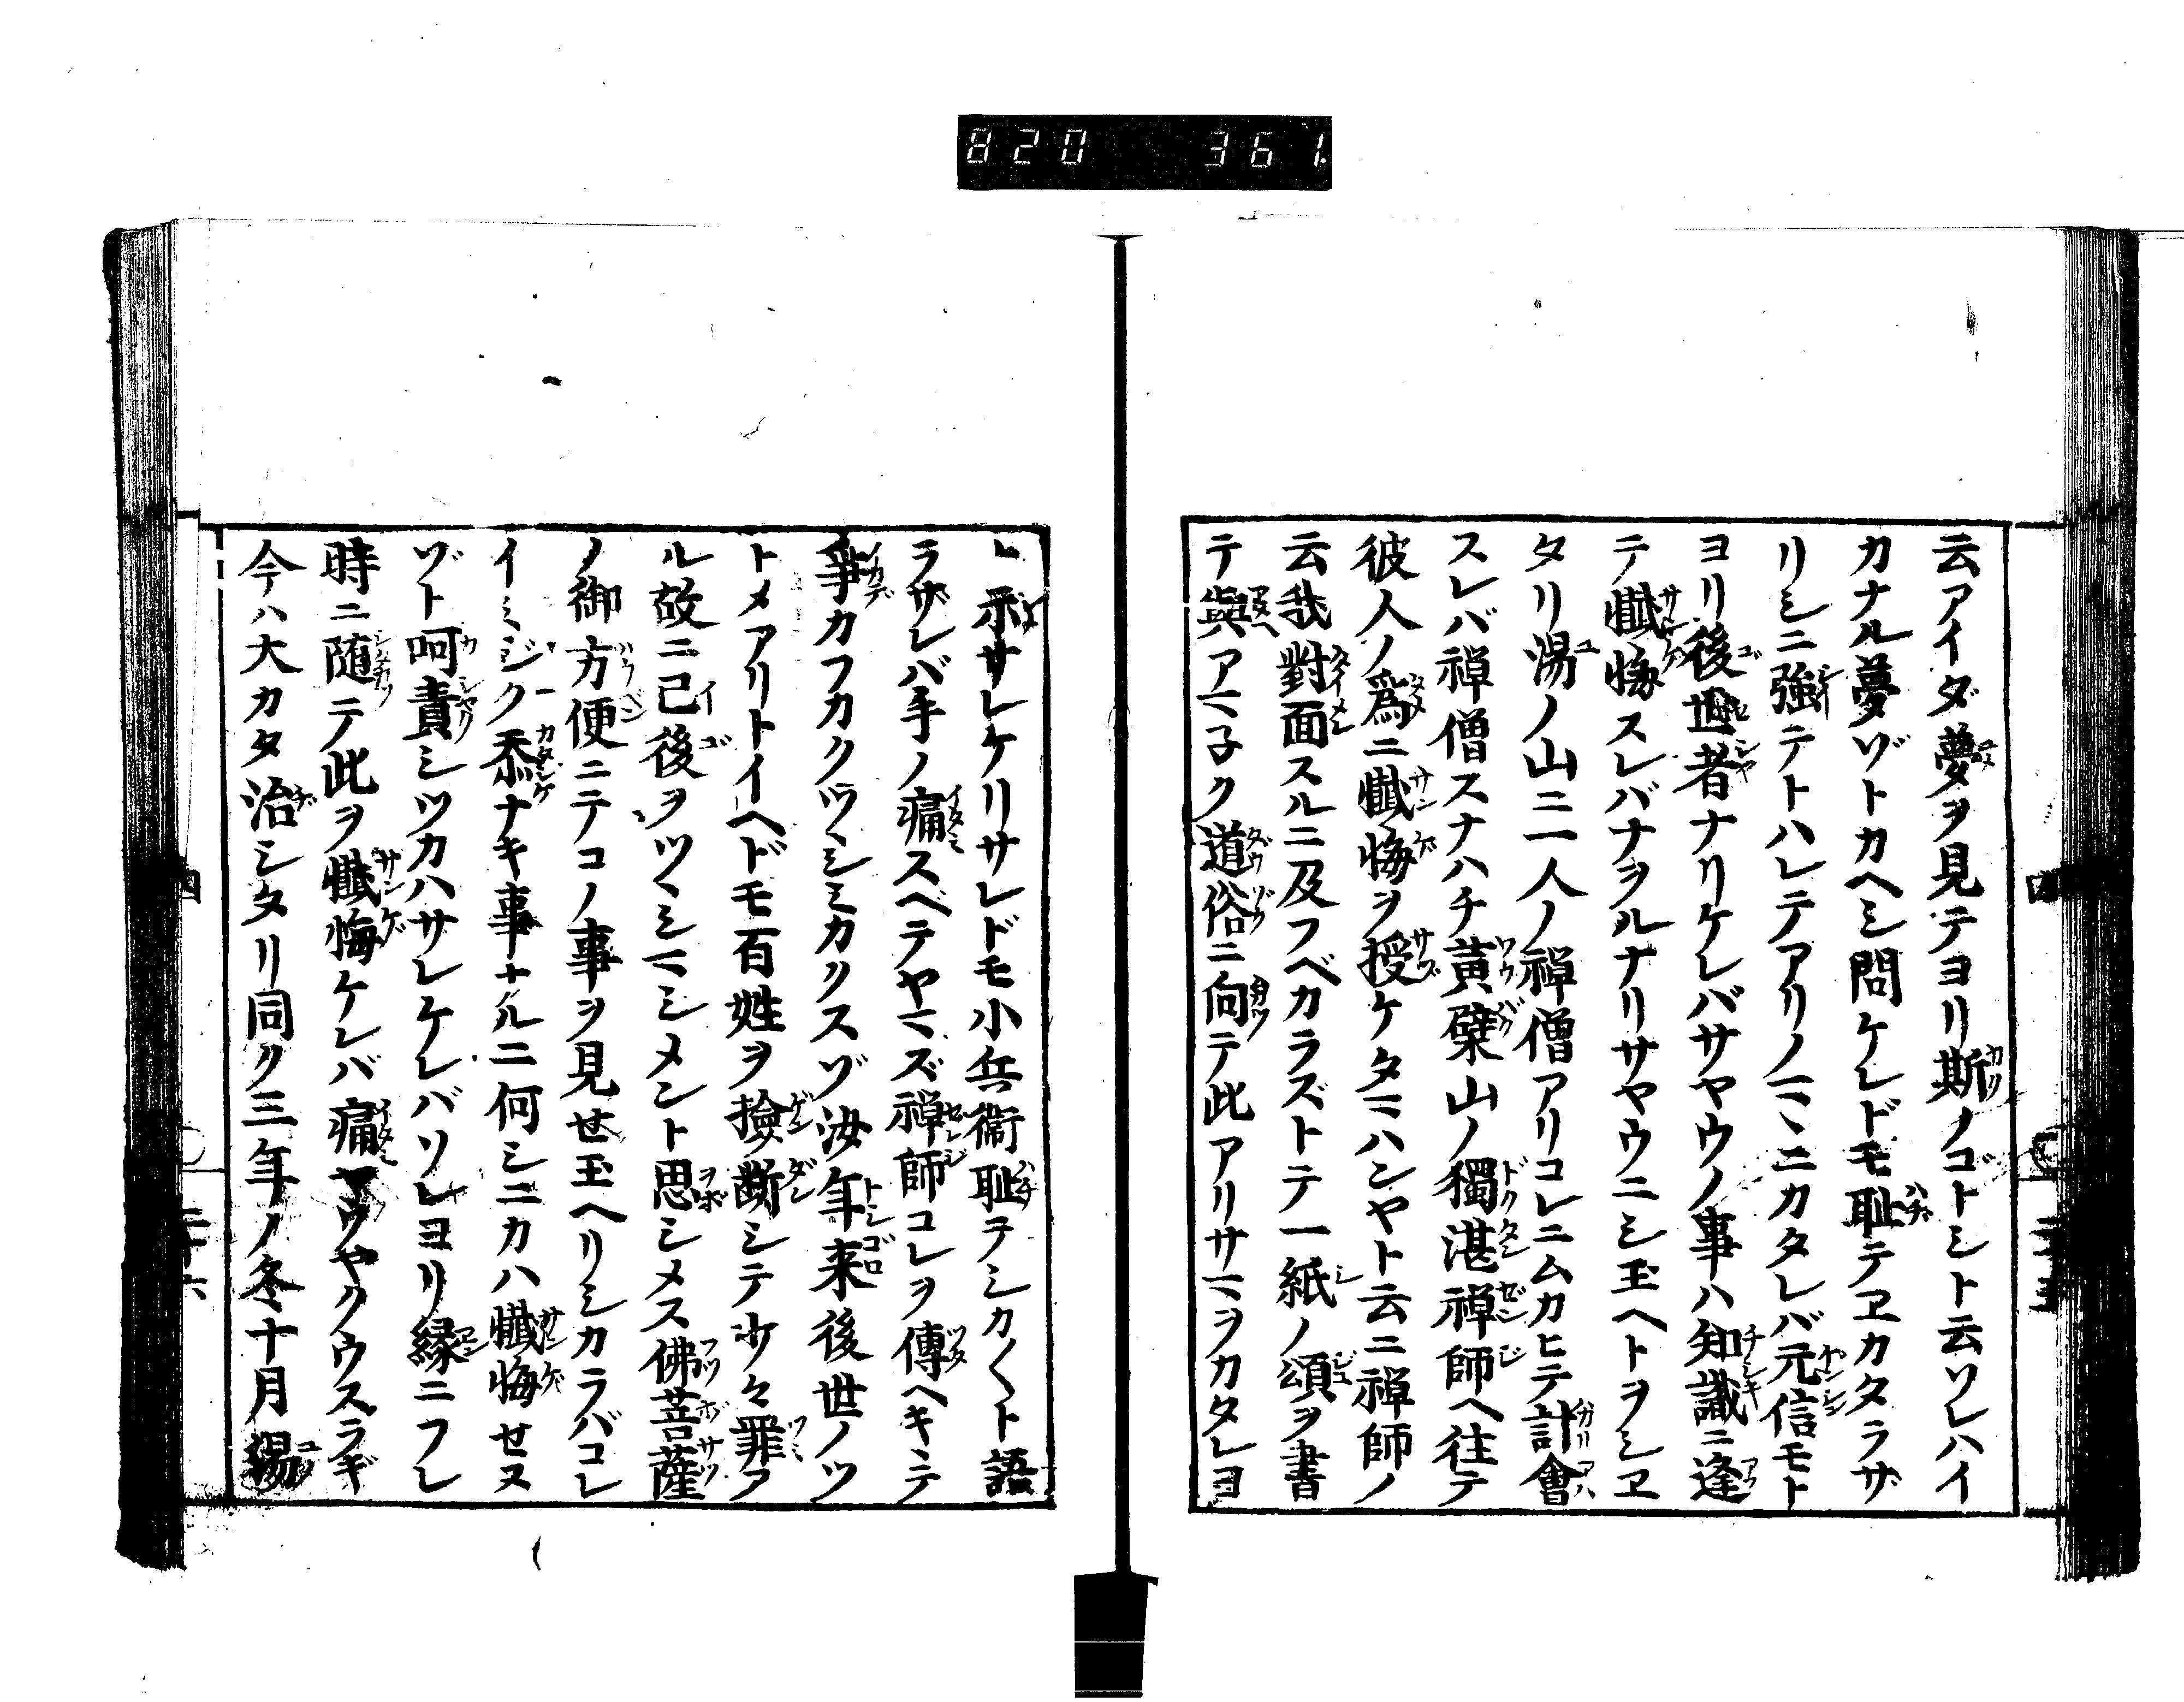 820 361
云アイダ夢ヲ見テヨリ斯ノゴトシト云ソレハイ
カナル夢ゾトカヘシ問ケレドモ耻テヱカタラザ
リシニ強テトハレテアリノマヽニカタレバ元信モト
ヨリ後世者ナリケレバサヤウノ事ハ知識ニ逢
テ懺悔スレバナヲルナリサヤウニシ玉ヘトヲシヱ
タリ湯ノ山ニ一人ノ禅僧アリコレニムカヒテ計會
スレバ禅僧スナハチ黄檗山ノ獨湛禅師ヘ往テ
彼人ノ爲ニ懺悔ヲ授ケタマハンヤト云ニ禅師ノ
云我對面スルニ及フベカラズトテ一紙ノ頌ヲ書
テ與ヘアマ子ク道俗ニ向テ此アリサマヲカタレヨ
ト示サレケリサレドモ小兵衞耻ヲシカ〱ト語
ラザレバ手ノ痛スベテヤマズ禅師コレヲ傳ヘキヽテ
爭カフカクツヽシミカクスゾ汝年来後世ノツ
トメアリトイヘドモ百姓ヲ撿断シテ少々罪ア
ル故ニ已後ヲツヽシマシメント思シメス佛菩薩
ノ御方便ニテコノ事ヲ見せ玉ヘリシカラバコレ
イミジク忝ナキ事ナルニ何シニカハ懺悔せヌ
ゾト呵責シツカハサレケレバソレヨリ縁ニフレ
時ニ随テ此ヲ懺悔ケレバ痛ヤウヤクウスラギ
今ハ大カタ治シタリ同ク三年ノ冬十月湯